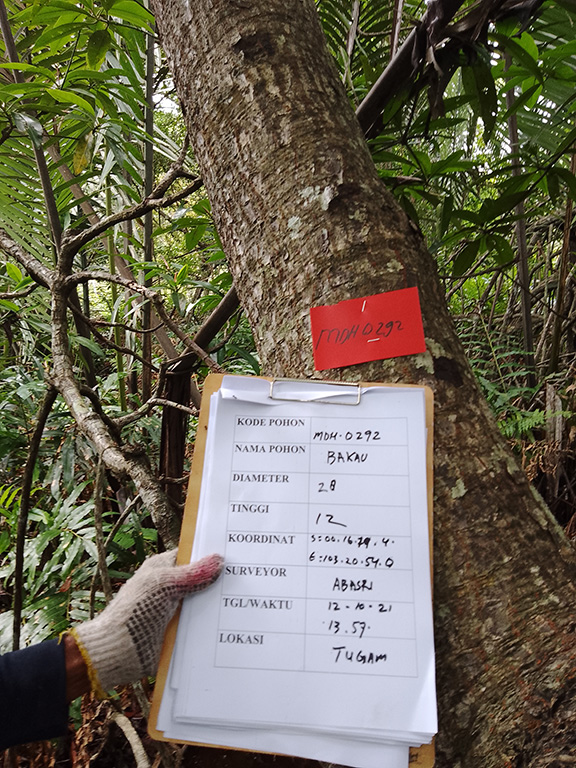 MDH0292
KODE POHON MDH-0292
NAMA POHON BAKAU
DIAMETER 28
TINGGI 12
KOORDINAT S=00.16.29.4.
E=103.20.54.0
SURVEYOR ABASRI
TGL/WAKTU 12-10-21
13.57.
LOKASI TUGAM